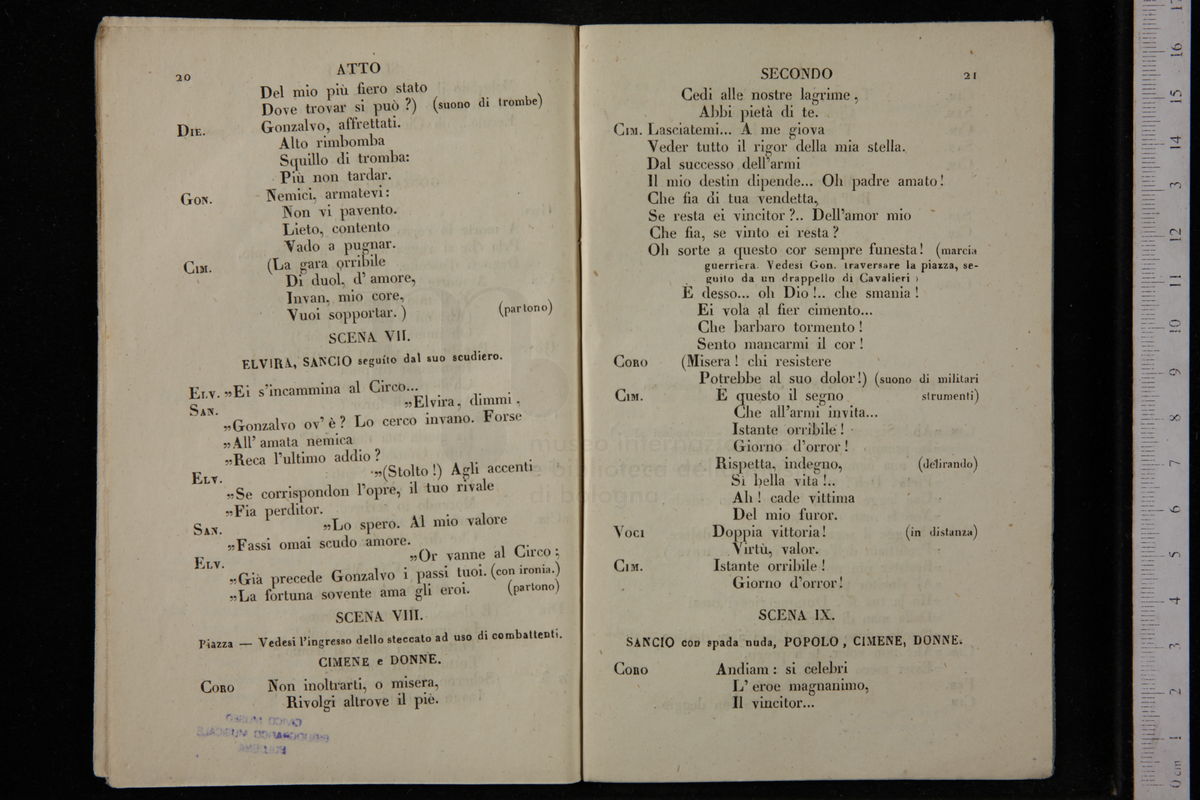 20
ATTO
Del mio più fiero stato
Dove trovar si può ?) (suono di trombe)
DIE. Gonzalvo, affrettati.
Alto rimbomba
Squillo di tromba:
Più non tardar.
GON. Nemici, armatevi:
Non vi pavento.
Lieto, contento
Vado a pugnar.
CIM. (La gara orribile
Di duol, d' amore,
Invan, mio core,
Vuoi sopportar. ) (partono)
SCENA VII.
ELVIRA, SANCIO seguito dal suo scudiero.
ELV. „Ei s'incammina al Circo...
SAN. „Elvira, dimmi,
„Gonzalvo ov' è ? Lo cerco invano. Forse
„All' amata nemica
„Reca l'ultimo addio ?
ELV. „(Stolto !) Agli accenti
„Se corrispondon l'opre, il tuo rivale
„Fia perditor.
SAN. „Lo spero. Al mio valore
„Fassi omai scudo amore.
ELV. „Or vanne al Circo;
„Già precede Gonzalvo i passi tuoi. (con ironia.)
„La fortuna sovente ama gli eroi. (partono)
SCENA VIII.
Piazza — Vedesi l'ingresso dello steccato ad uso di combattenti.
CIMENE e DONNE.
CORO Non inoltrarti, o misera,
Rivolgi altrove il piè.
CIVICO MUSEO
BIBLIOGRAFICO MUSICALE
BOLOGNA
SECONDO
21
Cedi alle nostre lagrime,
Abbi pietà di te.
CIM. Lasciatemi... A me giova
Veder tutto il rigor della mia stella.
Dal successo dell'armi
Il mio destin dipende... Oh padre amato!
Che fia di tua vendetta,
Se resta ei vincitor ?.. Dell'amor mio
Che fia, se vinto ei resta ?
Oh sorte a questo cor sempre funesta! (marcia
guerriera. Vedesi Gon. traversare la piazza, se-
guito da un drappello di Cavalieri )
È desso... oh Dio !.. che smania !
Ei vola al fier cimento...
Che barbaro tormento !
Sento mancarmi il cor !
CORO (Misera ! chi resistere
Potrebbe al suo dolor!) (suono di militari
CIM. È questo il segno strumenti)
Che all'armi invita...
Istante orribile !
Giorno d'orror !
Rispetta, indegno, (delirando)
Sì bella vita !..
Ah ! cade vittima
Del mio furor.
VOCI Doppia vittoria! (in distanza)
Virtù, valor.
CIM. Istante orribile !
Giorno d'orror!
SCENA IX.
SANCIO con spada nuda, POPOLO, CIMENE, DONNE.
CORO Andiam : si celebri
L' eroe magnanimo,
Il vincitor...
museo internazio
e biblioteca del
di bologna
0 cm 1 2 3 4 5 6 7 8 9 10 11 12 13 14 15 16 17